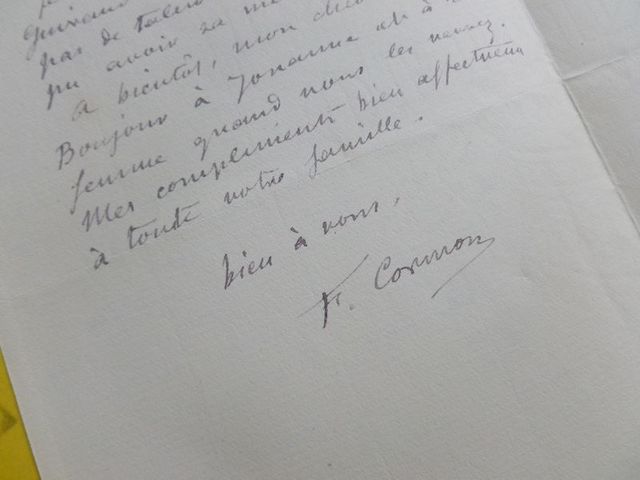 pas de talen
pu avoir sa me
à bientôt, mon cher
Bonjour à Jonanne et à
femme quand vous les verrez.
Mes compliments bien affectueux
à toute votre famille.
bien à vous,
F. Cormon